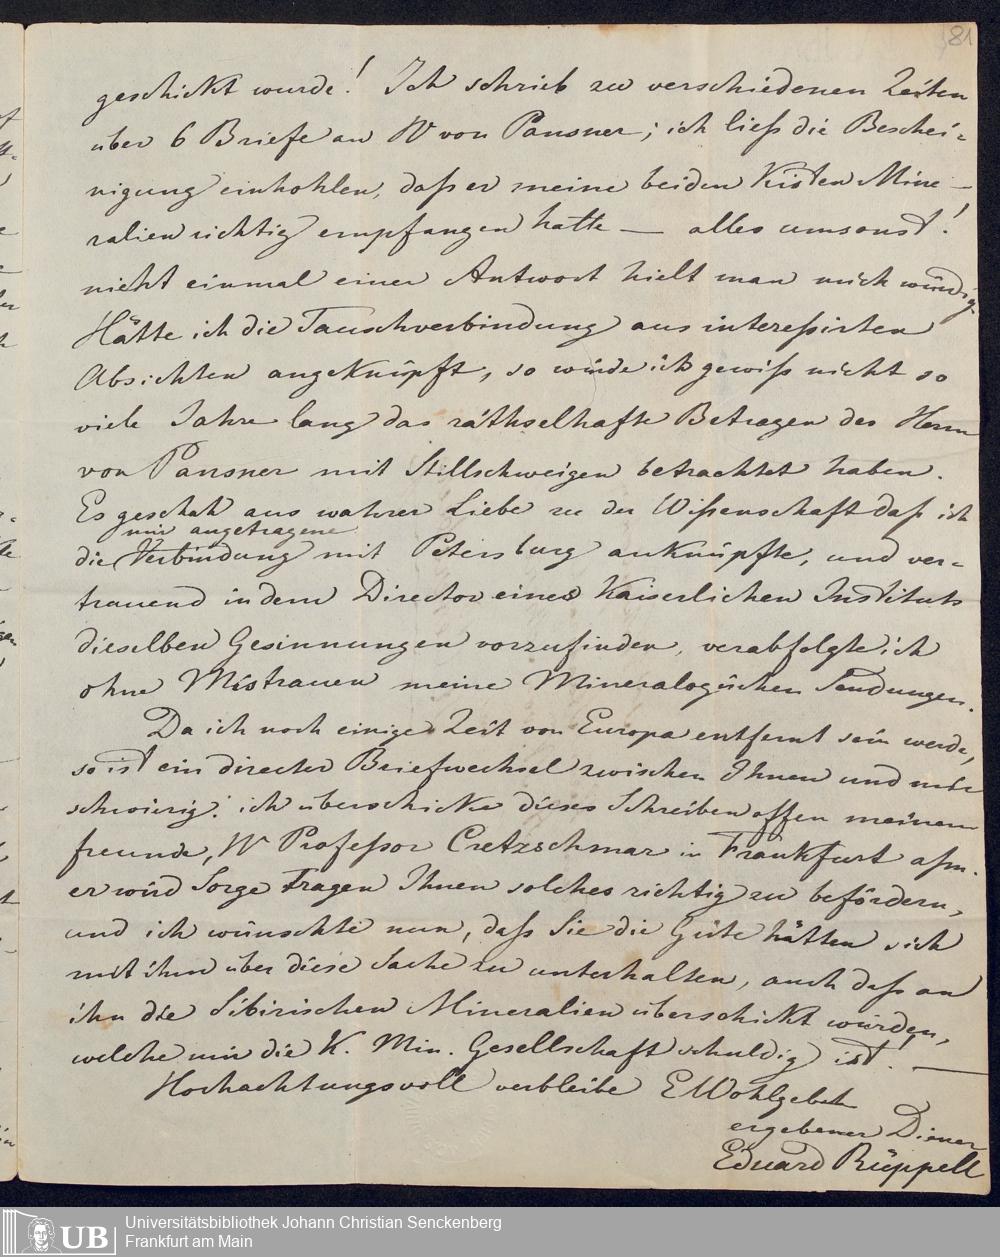 81
geschickt wurde! Ich schrieb zu verschiedenen Zeiten
über 6 Briefe an H von Pansner; ich ließ die Beschei-
nigung einhohlen, daß er meine beiden Kisten Mine-
ralien richtig empfangen hatte — alles umsonst!
nicht einmal einer Antwort hielt man mich würdig.
Hätte ich die Tauschverbindung aus interessirten
Absichten angeknüpft, so würde ich gewiß nicht so
viele Jahre lang das räthselhafte Betragen des Herrn
von Pansner mit Stillschweigen betrachtet haben.
Es geschah aus wahrer Liebe zu der Wißenschaft daß ich
mir angetragene
die Verbindung mit Petersburg anknüpfte, und ver-
trauend in dem Director eines Kaiserlichen Instituts
dieselben Gesinnungen vorzufinden, verabfolgte ich
ohne Mistrauen meine Mineralogischen Sendungen.
Da ich noch einige Zeit von Europa entfernt sein werde,
so ist ein directer Briefwechsel zwischen Ihnen und mir
schwierig: ich überschicke dieses Schreiben offen meinem
freunde, H Profeßor Cretzschmar in Frankfurt a/m.
er wird Sorge Tragen Ihnen solches richtig zu befördern,
und ich wünschte nun, daß Sie die Güte hätten sich
mit ihm über diese Sache zu unterhalten, auch daß an
ihn die Sibirischen Mineralien überschickt würden,
welche mir die K. Min. Gesellschaft schuldig ist! —
Hochachtungsvoll verbleibe E Wohlgeboh
ergebener Diener
Eduard Rüppell
UB
Universitätsbibliothek Johann Christian Senckenberg
Frankfurt am Main